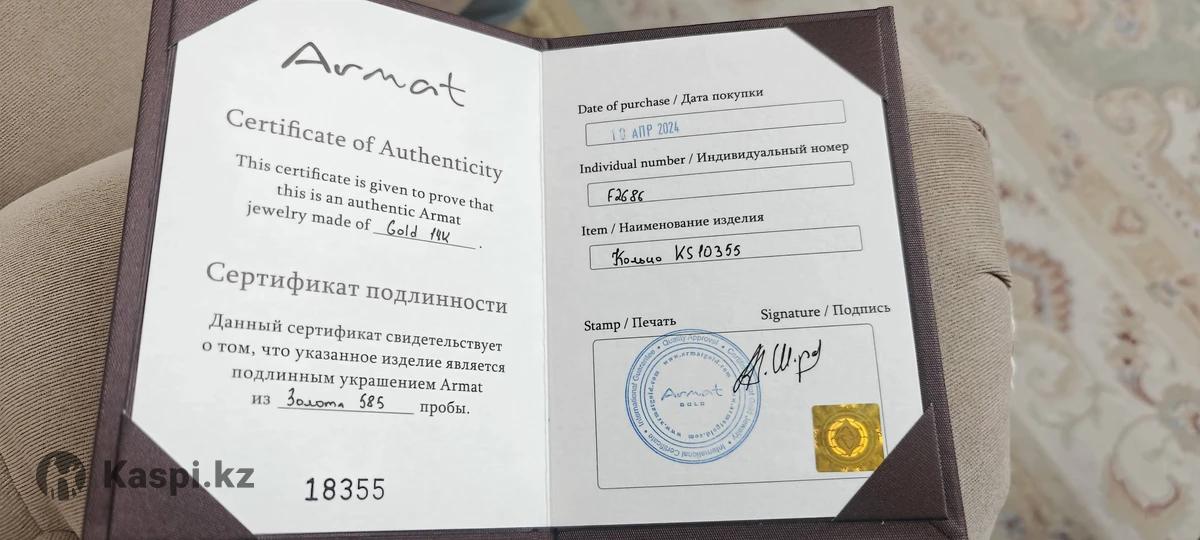 Armat
Certificate of Authenticity
This certificate is given to prove that
this is an authentic Armat
jewelry made of Gold 14K.
Сертификат подлинности
Данный сертификат свидетельствует
о том, что указанное изделие является
подлинным украшением Armat
из Золота 585 пробы.
18355
Kaspi.kz
Date of purchase / Дата покупки
10 АПР 2024
Individual number / Индивидуальный номер
F2686
Item / Наименование изделия
Кольцо KS10355
Stamp / Печать
Signature / Подпись
International Guarantee • Quality Approval •
www.armatgold.com
Armat
GOLD